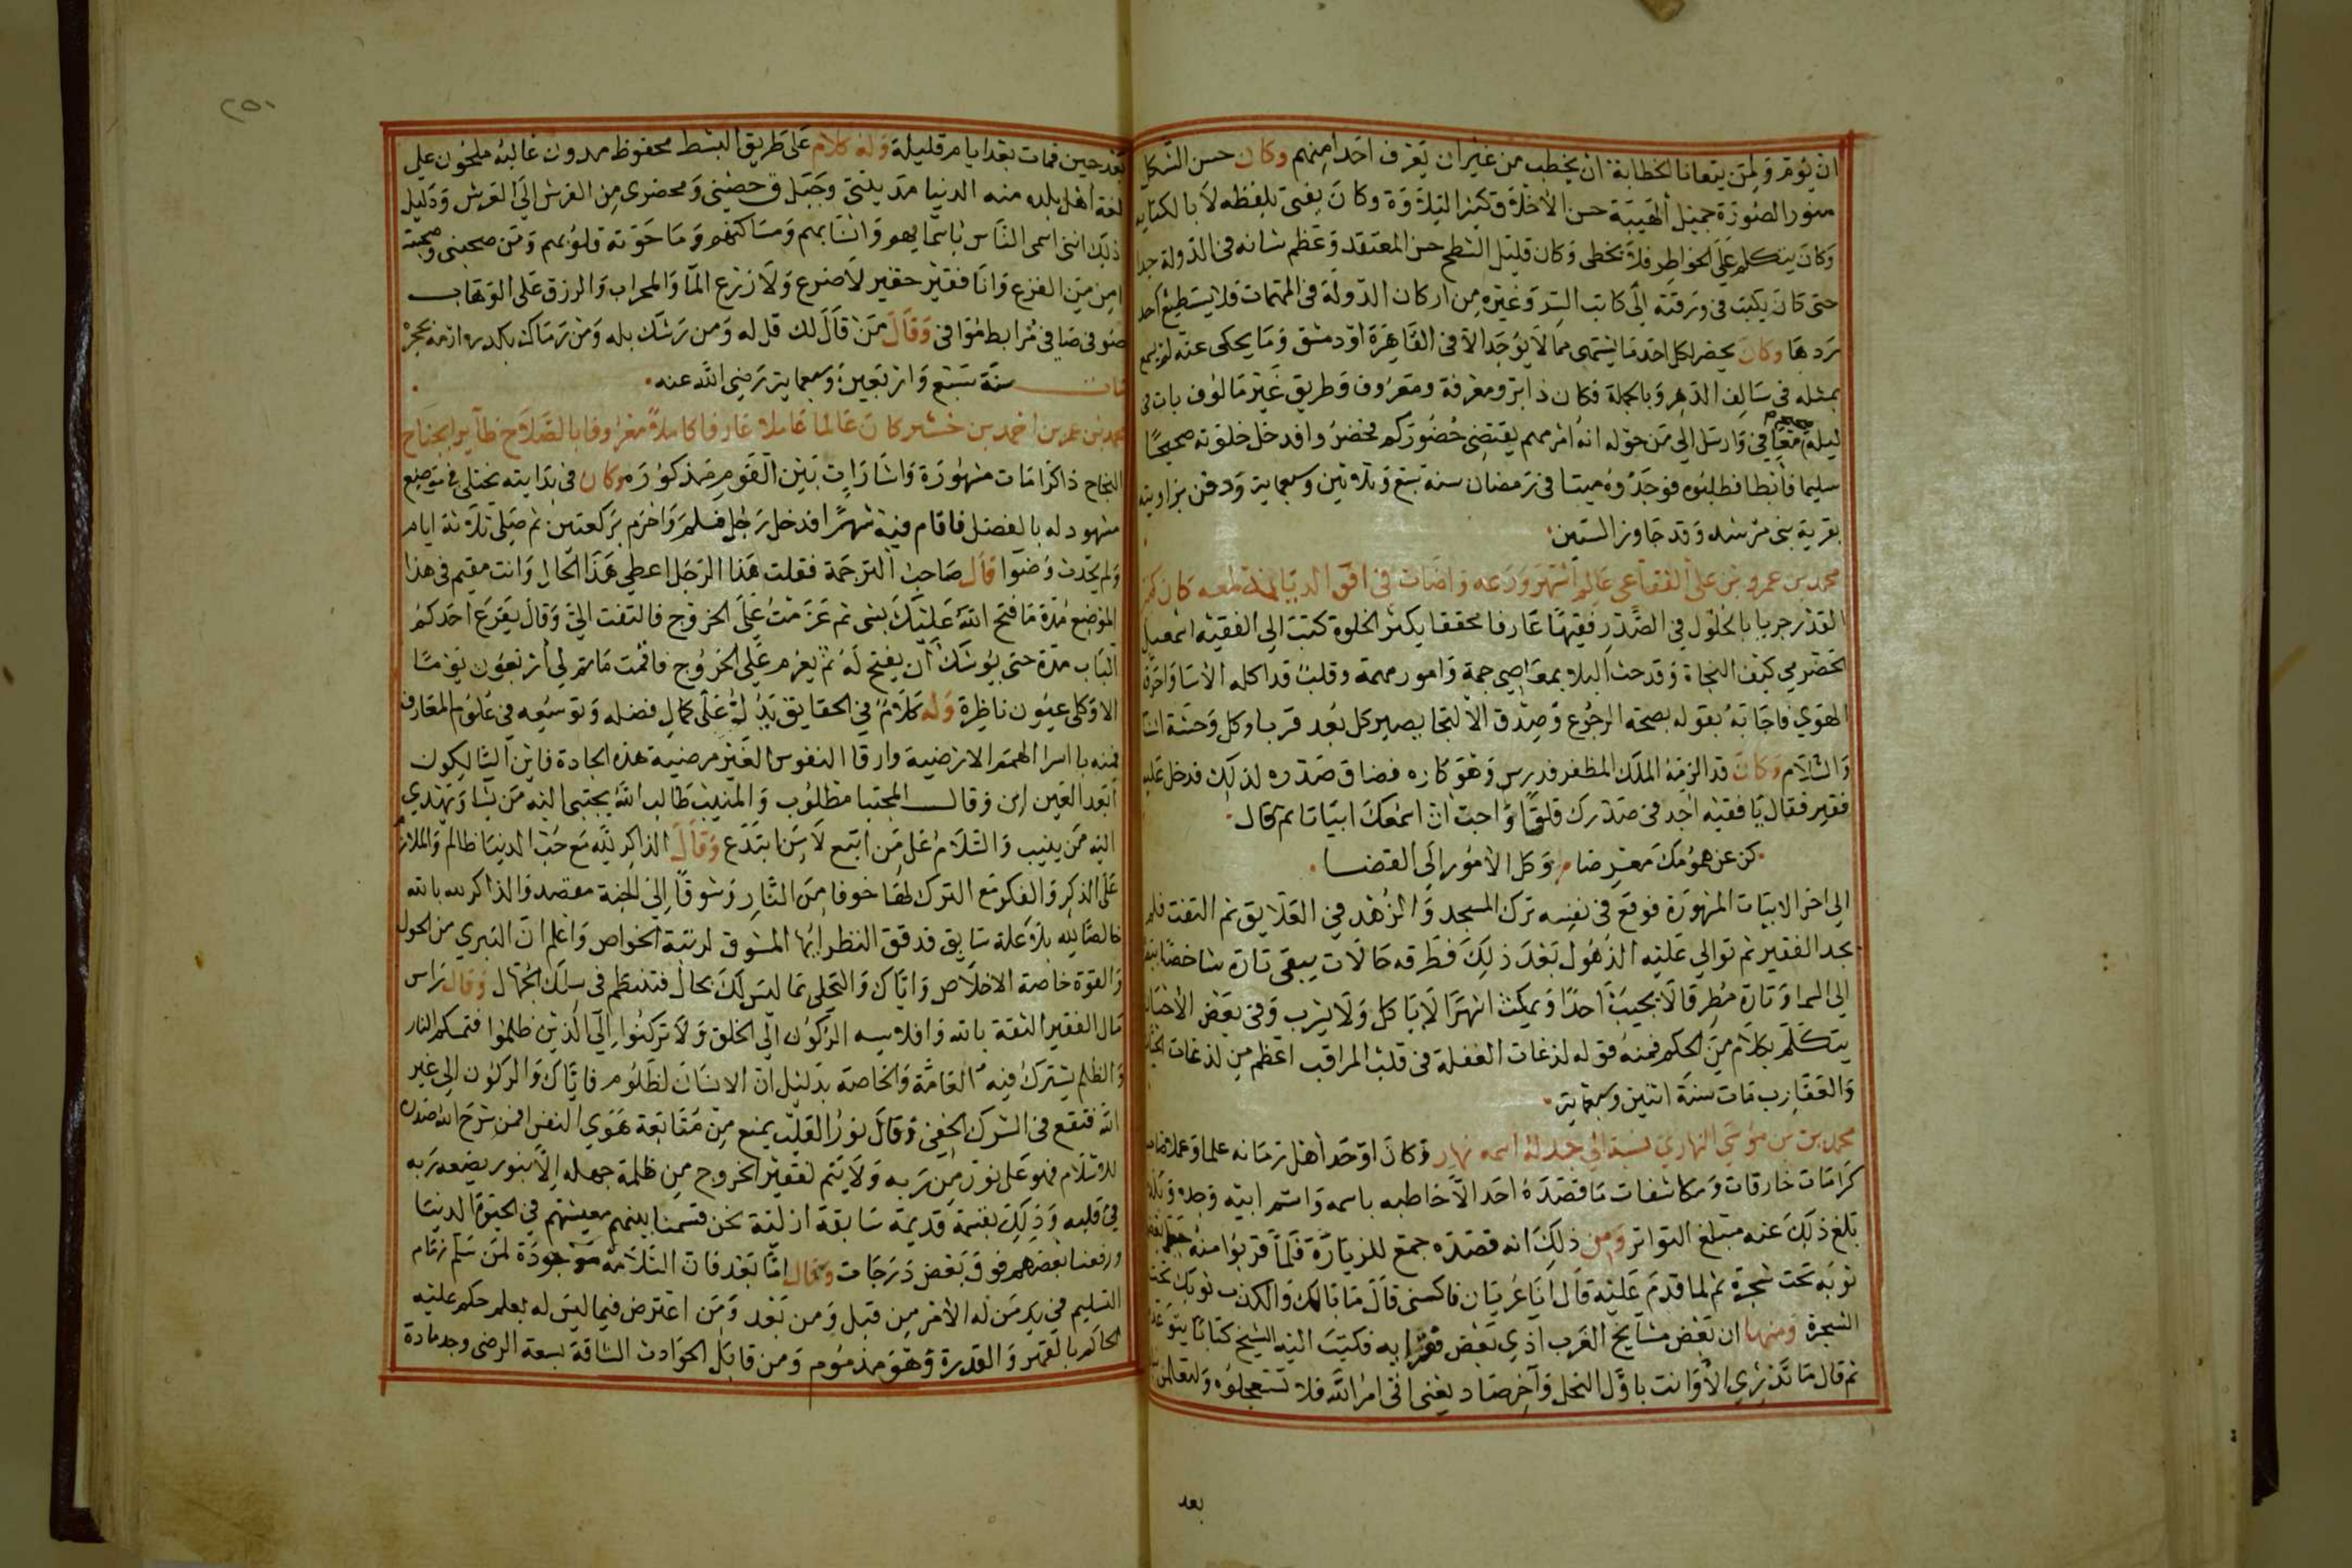 ان يؤم ولمن يتعانا الخطابة ان يخطب من غير ان يعرف احدا منهم وكان حسن الشكل
منور الصورة جميل الهيبة حسن الاخلاق كثير التلاوة وكان يفتي بلفظه لا بالكتابه
وكان يتكلم على الخواطر فلا يخطى وكان قليل الشطح حسن المعتقد وعظم شانه في الدولة جدا
حتى كان يكتب في ورقته الى كاتب السر وغيره من اركان الدولة في المهمات فلا يستطيع احد
ردها وكان يحضر لكل احد ما يشتهى مما لا يوجد الا في القاهرة او دمشق وما يحكى عنه لم يسمع
بمثله في سالف الدهر وبالجملة فكان ذا بر ومعرفة ومعروف وطريق غير مالوف بات في
ليلة معافي وارسل الي من حوله انه امر مهم يقتضي حضوركم فحضروا فدخل خلوته صحيحا
سليما فابطا فطلبوه فوجدوه ميتا في رمضان سنة سبع وثلاثين وسبعماية ودفن بزاويته
بقرية بني مرشد وقد جاوز الستين
محمد بن عمرو بن علي الفقاعي عالم اشتهر ورعه واضات في افق الديانة كان كبير
القدر جريا بالحلول في الصدر فقيها عارفا محققا يكثر الخلوة كتب الي الفقيه اسمعيل
الحضرمي كيف النجاة وقد حث البلا بمعاصي جمة وامور مهمة وقلب قد اكله الاسا واحرقه
الهوي فاجابه بقوله بصحة الرجوع وصدق الالتجا يصير كل بعد قربا وكل وحشة انسا
والسلام وكان قد الزمه الملك المظفر فدرس وهو كاره فضاق صدره لذلك فدخل عليه
فقير فقال يا فقيه اجد في صدرك قلقا واحب ان اسمعك ابياتا ثم قال
كن عن همومك معرضا وكل الامور الي القضا
الي اخر الابيات المشهورة فوقع في نفسه ترك المسجد والزهد في العلايق ثم التفت فلم
يجد الفقير ثم توالي عليه الذهول بعد ذلك فطرقه حالات يبقى تارة شاخصا ببصره
الي السما وتارة مطرقا لا يجيب احدا ويمكث اشهرا لا ياكل ولا يشرب وفي بعض الاحيان
يتكلم بكلام من الحكم فمنه قوله لدغات الغفلة في قلب المراقب اعظم من لدغات الحيات
والعقارب مات سنة اثنين وسبعماية
محمد بن موسي النهاري نسبة الي جد له اسمه نهار وكان اوحد اهل زمانه علما وعملا صاحب
كرامات خارقات ومكاشفات ما قصده احد الا خاطبه باسمه واسم ابيه وجده وبلده
بلغ ذلك عنه مبلغ التواتر ومن ذلك انه قصده جمع للزيارة فلما قربوا منه جعل بعضهم
ثوبه تحت شجرة ثم لما قدم عليه قال انا عريان فاكسني قال ما بالك والكذب ثوبك تحت
الشجرة ومنها ان بعض مشايخ العرب اذي بعض فقرايه فكتب اليه الشيخ كتابا يتوعده
ثم قال ما تدري الا وانت باول النحل وآخر صاد يعني اتى امر الله فلا تستعجلوه ولتعلمن نباه
بعد
٢٥١
بعد حين فمات بعد ايام قليلة وله كلام على طريق البسط محفوظ مدون غالبه ملحون علي
لغة اهل بلده منه الدنيا مدينتي وجبل ق حصيني ومحضري من الفرش الي العرش ودليل
ذلك انني اسمي الناس باسمايهم وانسابهم ومساكنهم وما حوته قلوبهم ومن صحبني وصحبته
امن من الفزع وانا فقير حقير لا ضرع ولا زرع الما والمحراب والرزق على الوهاب
صوفي صافي مرابط موافي وقال من قال لك قل له ومن رشك بله ومن رماك بكدر وارمه بحجر
مات سنة سبع واربعين وسبعماية رضي الله عنه
محمد بن عمر بن احمد بن خشير كان عالما عاملا عارفا كاملا معروفا بالصلاح طاير الجناح
النجاح ذا كرامات مشهورة واشارات بين القوم مذكورة وكان في بدايته يختلي في موضع
مشهود له بالفضل فاقام فيه شهرا فدخل رجل فسلم واحرم بركعتين ثم صلى ثلاثة ايام
ولم يحدث وضوا قال صاحب الترجمة فقلت هذا الرجل اعطي هذا الحال وانت مقيم في هذا
الموضع مدة ما فتح الله عليك بشى ثم عزمت على الخروج فالتفت الي وقال يقرع احدكم
الباب مدة حتى يوشك ان يفتح له ثم يعزم على الخروج فاقمت ما تم لي اربعون يوما
الا وكلي عيون ناظرة وله كلام في الحقايق يدل على كمال فضله وتوسعه في علوم المعارف
فمنه يا اسرا الهمم الارضية وارقا النفوس الغير مرضية هذه الجادة فاين السالكون
ابعد العين اين وقال المجتبا مطلوب والمنيب طالب الله يجتبى اليه من يشا ويهدي
اليه من ينيب والسلام على من اتبع لا من ابتدع وقال الذاكر لله مع حب الدنيا ظالم والملازم
على الذكر والفكر مع الترك لها خوفا من النار وشوقا الي الجنة مقتصد والذاكر لله بالله
خالصا لله بلا علة سابق فدقق النظر ايها المشوق لرتبة الخواص واعلم ان التبري من الحول
والقوة خاصة الاخلاص واياك والتحلي بما ليس لك بحال فتنتظم في سلك الجهال وقال راس
مال الفقير الثقة بالله وافلاسه الركون الي الخلق ولا تركنوا الي الذين ظلموا فتمسكم النار
والظلم يشترك فيه العامة والخاصة بدليل ان الانسان لظلوم فاياك والركون الي غير
الله فتقع في الشرك الخفي وقال نور القلب يمنع من متابعة هوي النفس افمن شرح الله صدره
للاسلام فهو على نور من ربه ولا يتم لفقير الخروج من ظلمة جهله الا بنور يضعه ربه
في قلبه وذلك بقسمة قديمة سابقة ازلية نحن قسمنا بينهم معيشتهم في الحيوة الدنيا
ورفعنا بعضهم فوق بعض درجات وقال اما بعد فان السلامة موجودة لمن سلم زمام
التسليم في يد من له الامر من قبل ومن بعد ومن اعترض فيما ليس له بعلم حكم عليه
الحاكم بالقهر والقدرة وهو مذموم ومن قابل الحوادث الشاقة بسعة الرضى وجد مادة